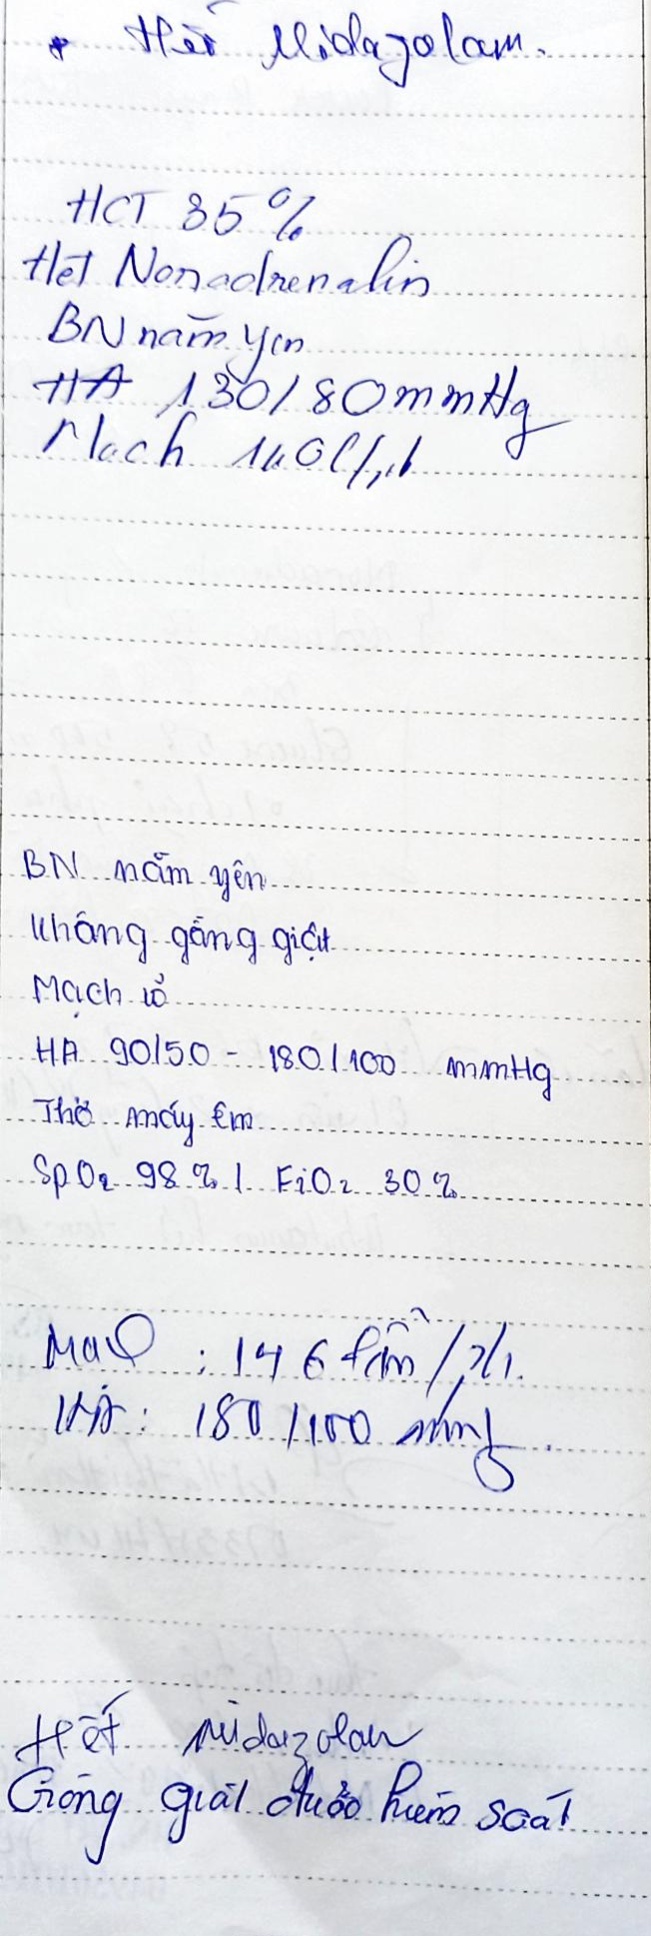 * Hết Midazolam.
HCT 35%
Hết Nonadrenalin
BN nằm yên
HA 130/80mmHg
Mạch 140l/ph
BN nằm yên
Không gồng giật
Mạch rõ
HA 90/50 - 180/100 mmHg
Thở máy êm
SpO₂ 98% / FiO₂ 30%
: 146 lần/
HA: 180/100 mmHg
Hết Midazolam
Gồng giật được kiểm soát